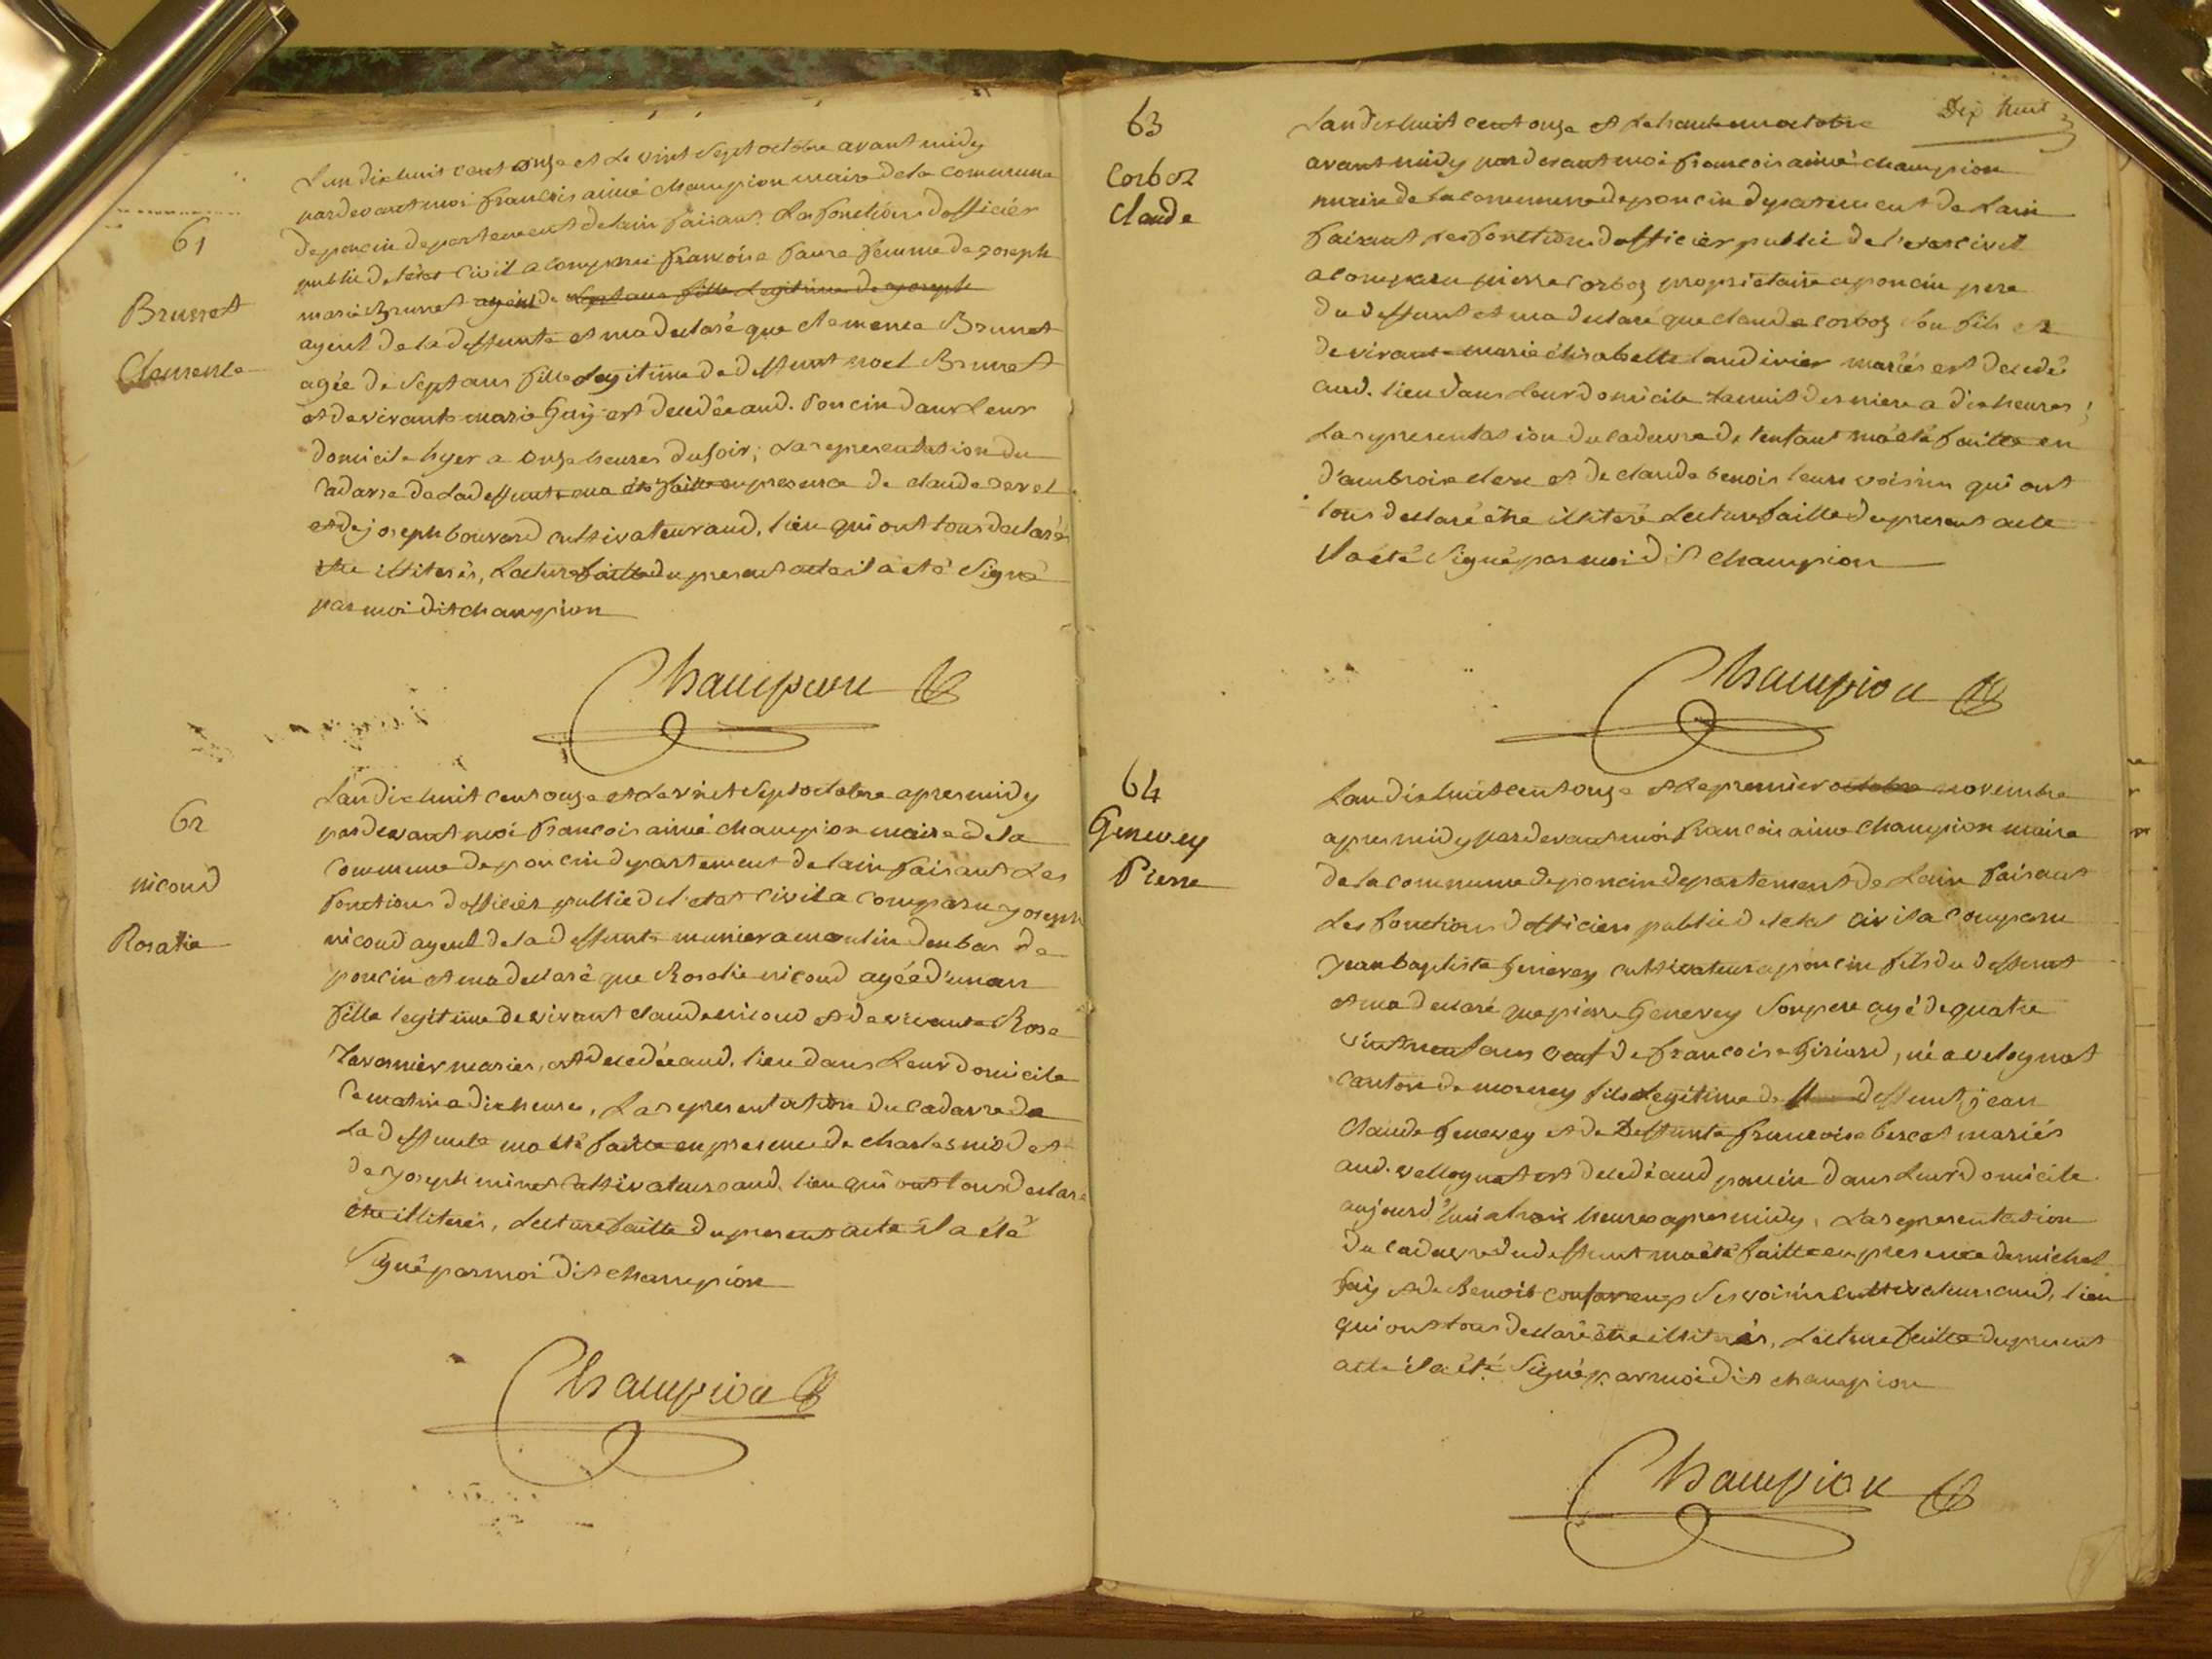 61
Brunet
Clemence
L'an dix huit cent onze et le vint sept octobre avant midy
pardevant moi françois aimé champion maire de la commune
de poncin departement de lain faisant Les fonctions dofficier
public de létat civil a comparu françoise faure femme de joseph
marie Brunet ayeul de sept ans fille Legitime de joseph
ayeul de la deffunte et ma declaré que clemence Brunet
agée de sept ans fille Legitime de deffunt noel Brunet
et de vivante marie Guy est decedée aud. Poncin dans Leur
domicile hyer a onze heures du soir; La representation du
Cadavre de La deffunte ma été faitte en presence de claude revel
et de joseph bouvard cultivateur aud. lieu qui ont tous declarés
etre illiterés, Lecture faitte du present acte il a eté signé
par moi dit champion
Champion
62
nicoud
Rosalie
Lan dix huit cent onze et Le vint sept octobre apres midy
pardevant moi françois aimé champion maire de la
commune de poncin departement de lain faisant Les
fonctions dofficier public de l'etat civil a comparu joseph
nicoud ayeul de la deffunte munier a moulin den bas de
poncin et ma declaré que Rosalie nicoud agée d'un an
fille legitime de vivant claude nicoud et de vivante Rose
Tavernier mariés, est decedée aud. lieu dans Leur domicile
Ce matin a dix heures, La representation du cadavre de
La deffunte ma eté faitte en presence de charles niod et
de joseph minet cultivateurs aud. lieu qui ont tous declaré
etre illiterés, Lecture faitte du present acte il a eté
Signé par moi dit champion
Champion
Dix huit
63
Corboz
Claude
Lan dix huit cent onze et Le trante un octobre
avant midy pardevant moi françois aimé champion
maire de La commune de poncin departement de Lain
faisant Les fonctions dofficier public de l'etat civil
a comparu pierre Corboz proprietaire a poncin pere
du deffunt et ma declaré que claude corboz son fils et
de vivante marie élisabette laudivier mariés est decedé
aud. lieu dans Leur domicile La nuit derniere a dix heures;
La representation du cadavre de lenfant ma eté faitte en
d'ambroise clerc et de claude benoit leurs voisins qui ont
tous declaré être illiteré Lecture faitte du present acte
Il a eté Signé par moi dit champion
Champion
64
Genevey
Pierre
Lan dix huit cent onze et Le premier octobre novembre
apres midy pardevant moi françois aimé champion maire
de la commune de poncin departement de Lain faisant
Les fonctions dofficier public de letat civil a comparu
jean baptiste Genevey cultivateur a poncin fils du deffunt
et ma declaré que pierre Genevey Son pere agé de quatre
vint neuf ans veuf de françoise Giriard, né a velognat
canton de mornay fils Legitime de deffunt jean
Claude Genevey et de Deffunte françoise bercet mariés
aud. vellognat est decedé aud poncin dans Leur domicile
aujourd'hui a trois heures apres midy, La representation
du cadavre du deffunt ma eté faitte en presence de michel
Guy et de Benoit ses voisins cultivateurs aud. lieu
qui ont tous declaré être illiterés, Lecture faitte du present
acte il a été Signé par moi dit champion
Champion